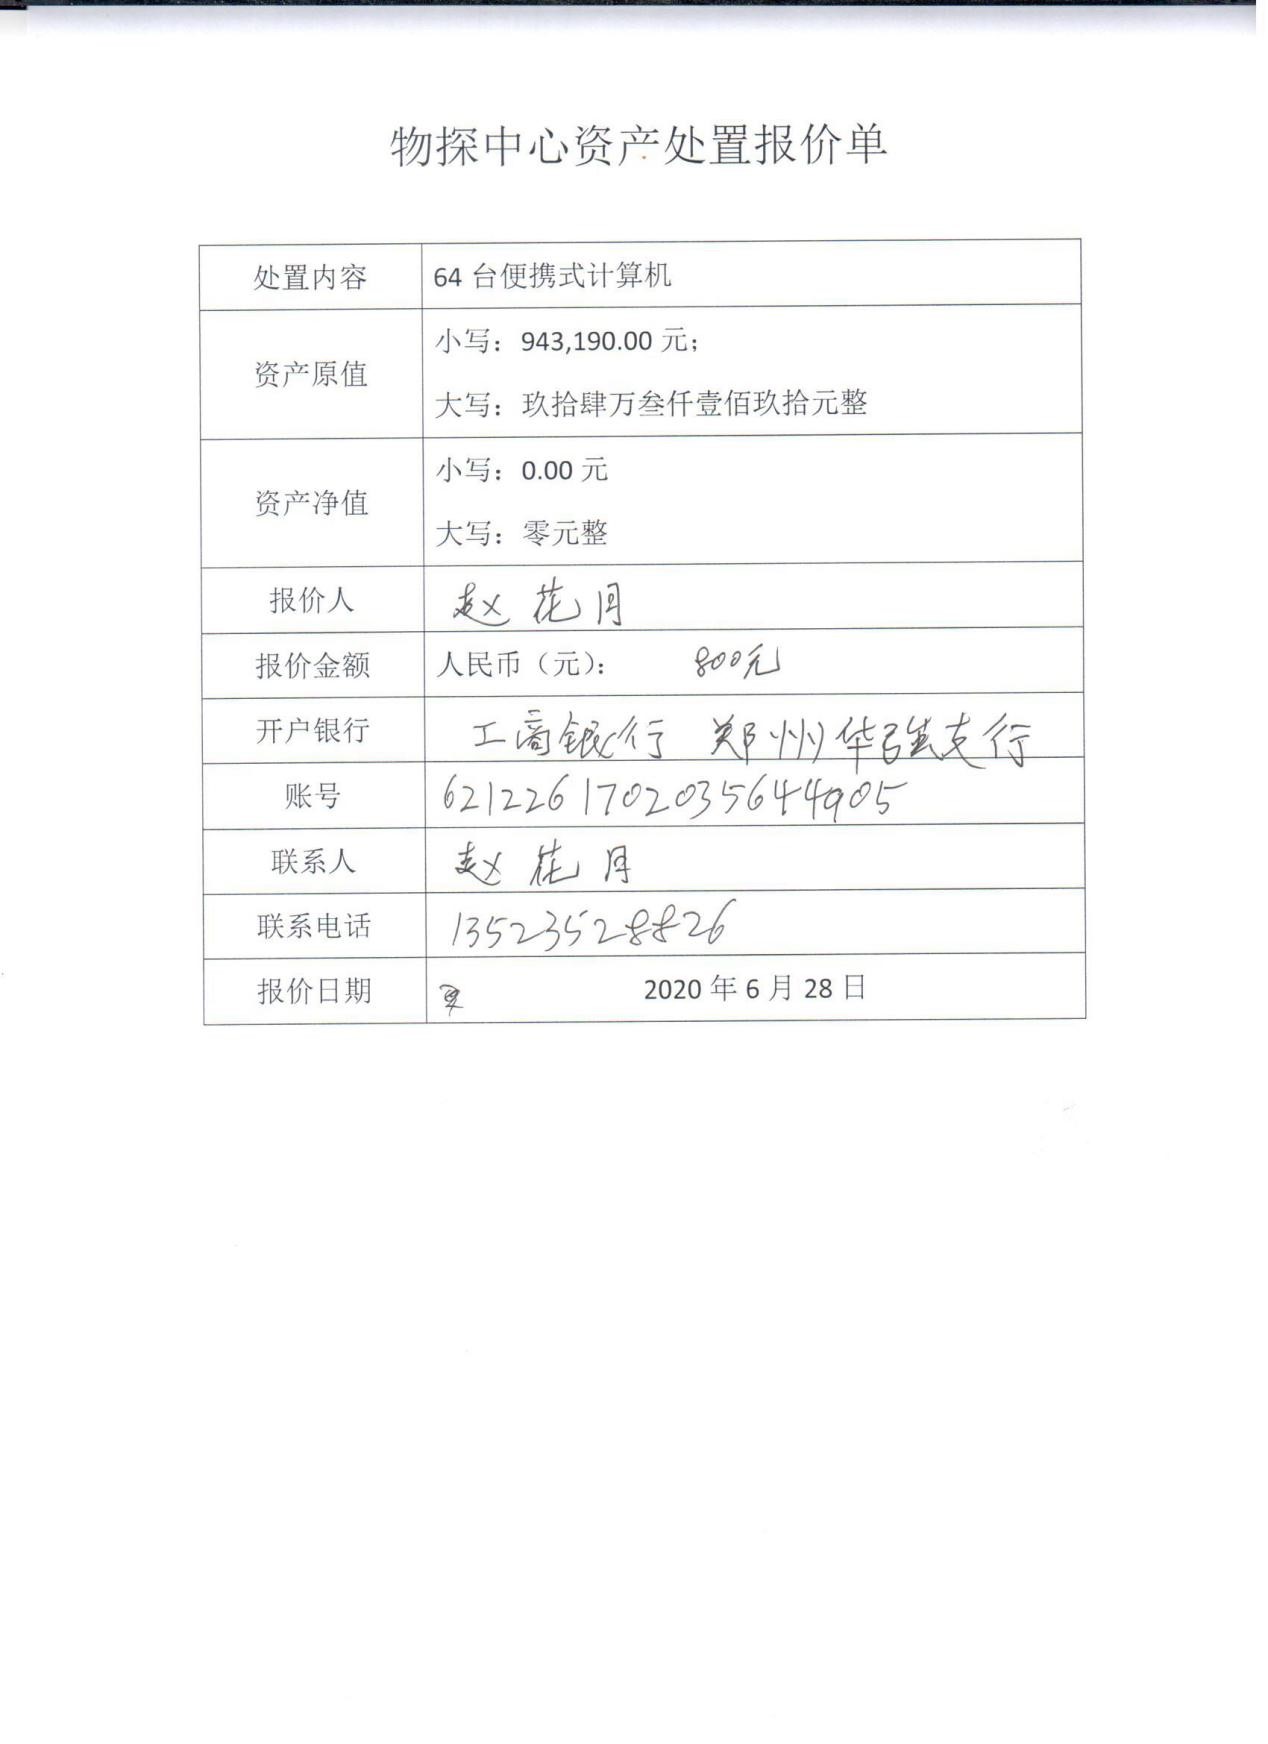 物探中心资产处置报价单
处置内容 64 台便携式计算机
资产原值
小写：943,190.00 元；
大写：玖拾肆万叁仟壹佰玖拾元整
资产净值
小写：0.00 元
大写：零元整
报价人 赵花月
报价金额 人民币（元）： 800元
开户银行 工商银行 郑州华强支行
账号 6212261702035644905
联系人 赵花月
联系电话 13523528826
报价日期 2020 年 6 月 28 日